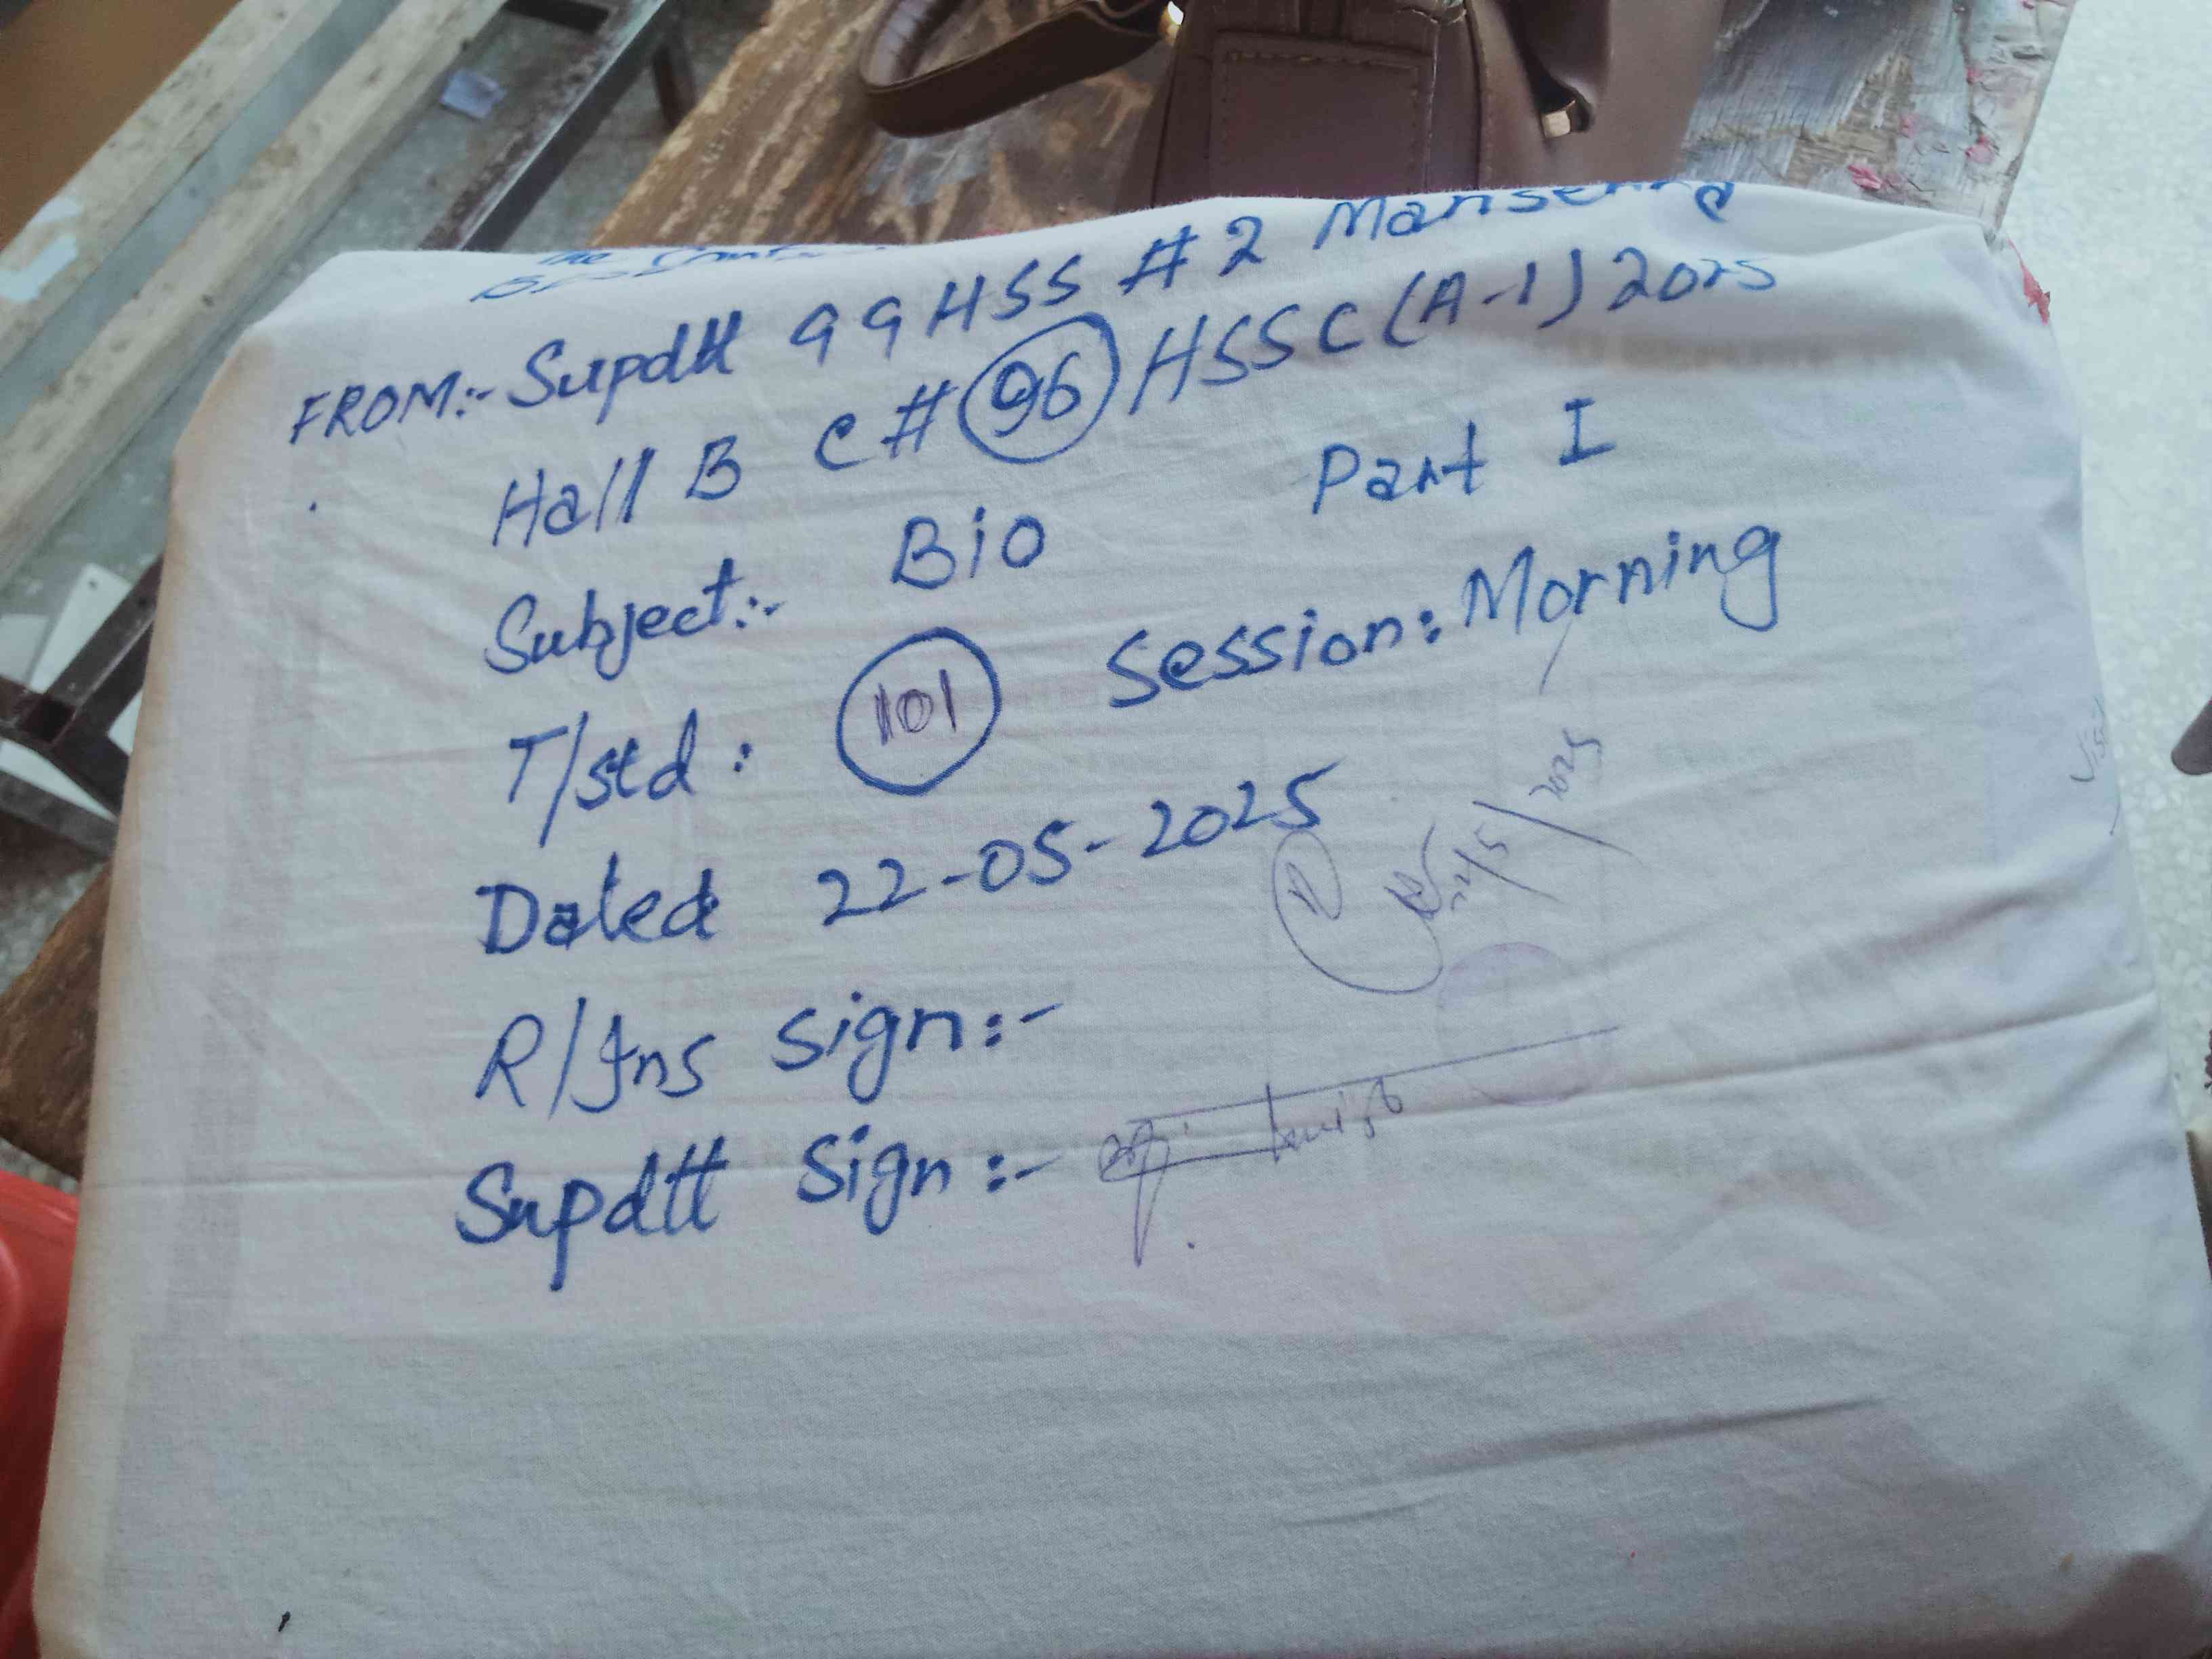 FROM:- Supdtt GGHSS #2 Mansehra
Hall B C# 96 HSSC (A-1) 2025
Subject:- Bio Part I
T/std: 101 Session: Morning
Dated 22-05-2025
22/5/2025
R/Ins Sign:-
Supdtt Sign:-